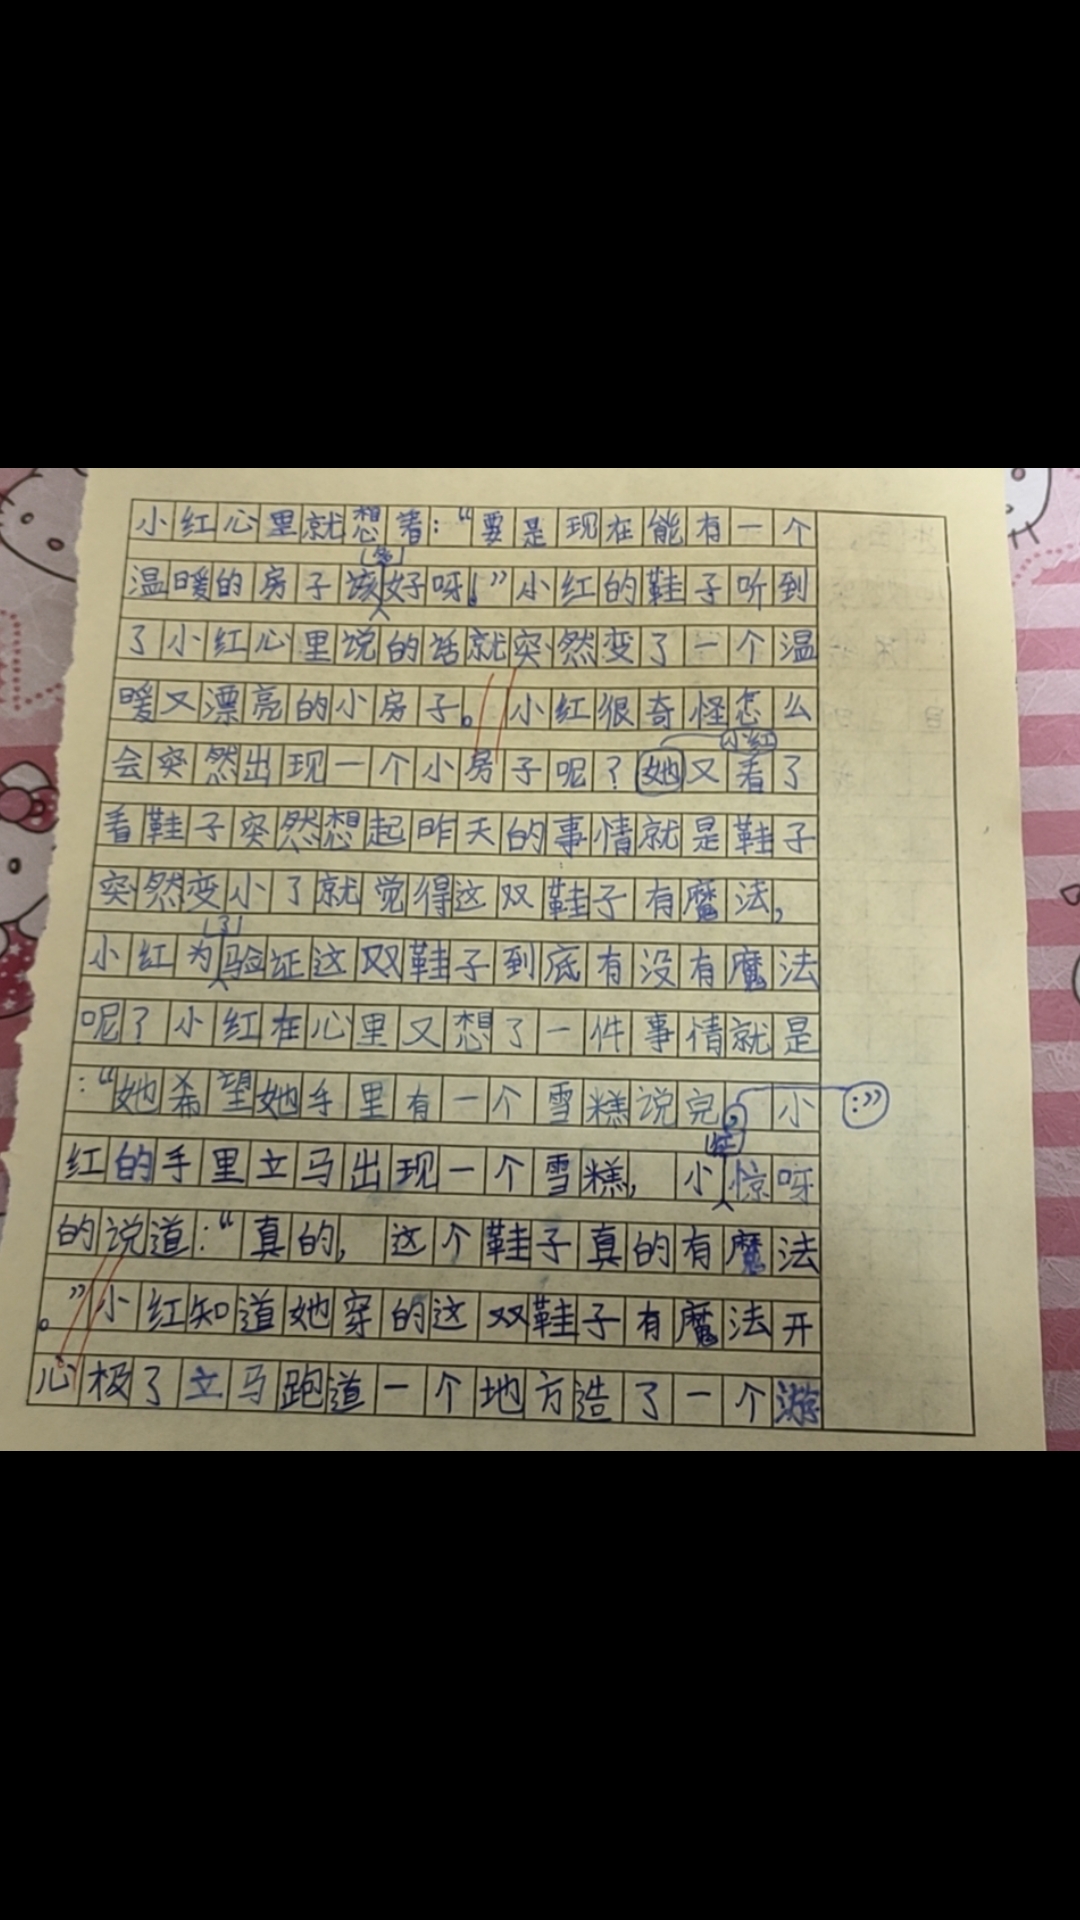 小红心里就想着：“要是现在能有一个
温暖的房子该多好呀！”小红的鞋子听到
了小红心里说的话就突然变了一个温
暖又漂亮的小房子。小红很奇怪怎么
会突然出现一个小房子呢？她又看了
小红
看鞋子突然想起昨天的事情就是鞋子
突然变小了就觉得这双鞋子有魔法，
小红为了验证这双鞋子到底有没有魔法
呢？小红在心里又想了一件事情就是
：“她希望她手里有一个雪糕说完，小
：”
红的手里立马出现一个雪糕，小红惊呀
的说道：“真的，这个鞋子真的有魔法
。”小红知道她穿的这双鞋子有魔法开
心极了立马跑道一个地方造了一个游